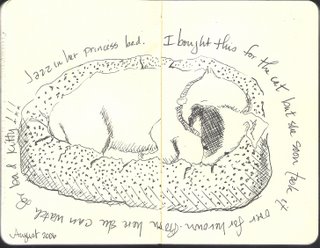 Jezz in her princess bed.
I bought this for the cat but she soon took it
over for her own. From here she can watch
for bad kitty!!!
August 2006